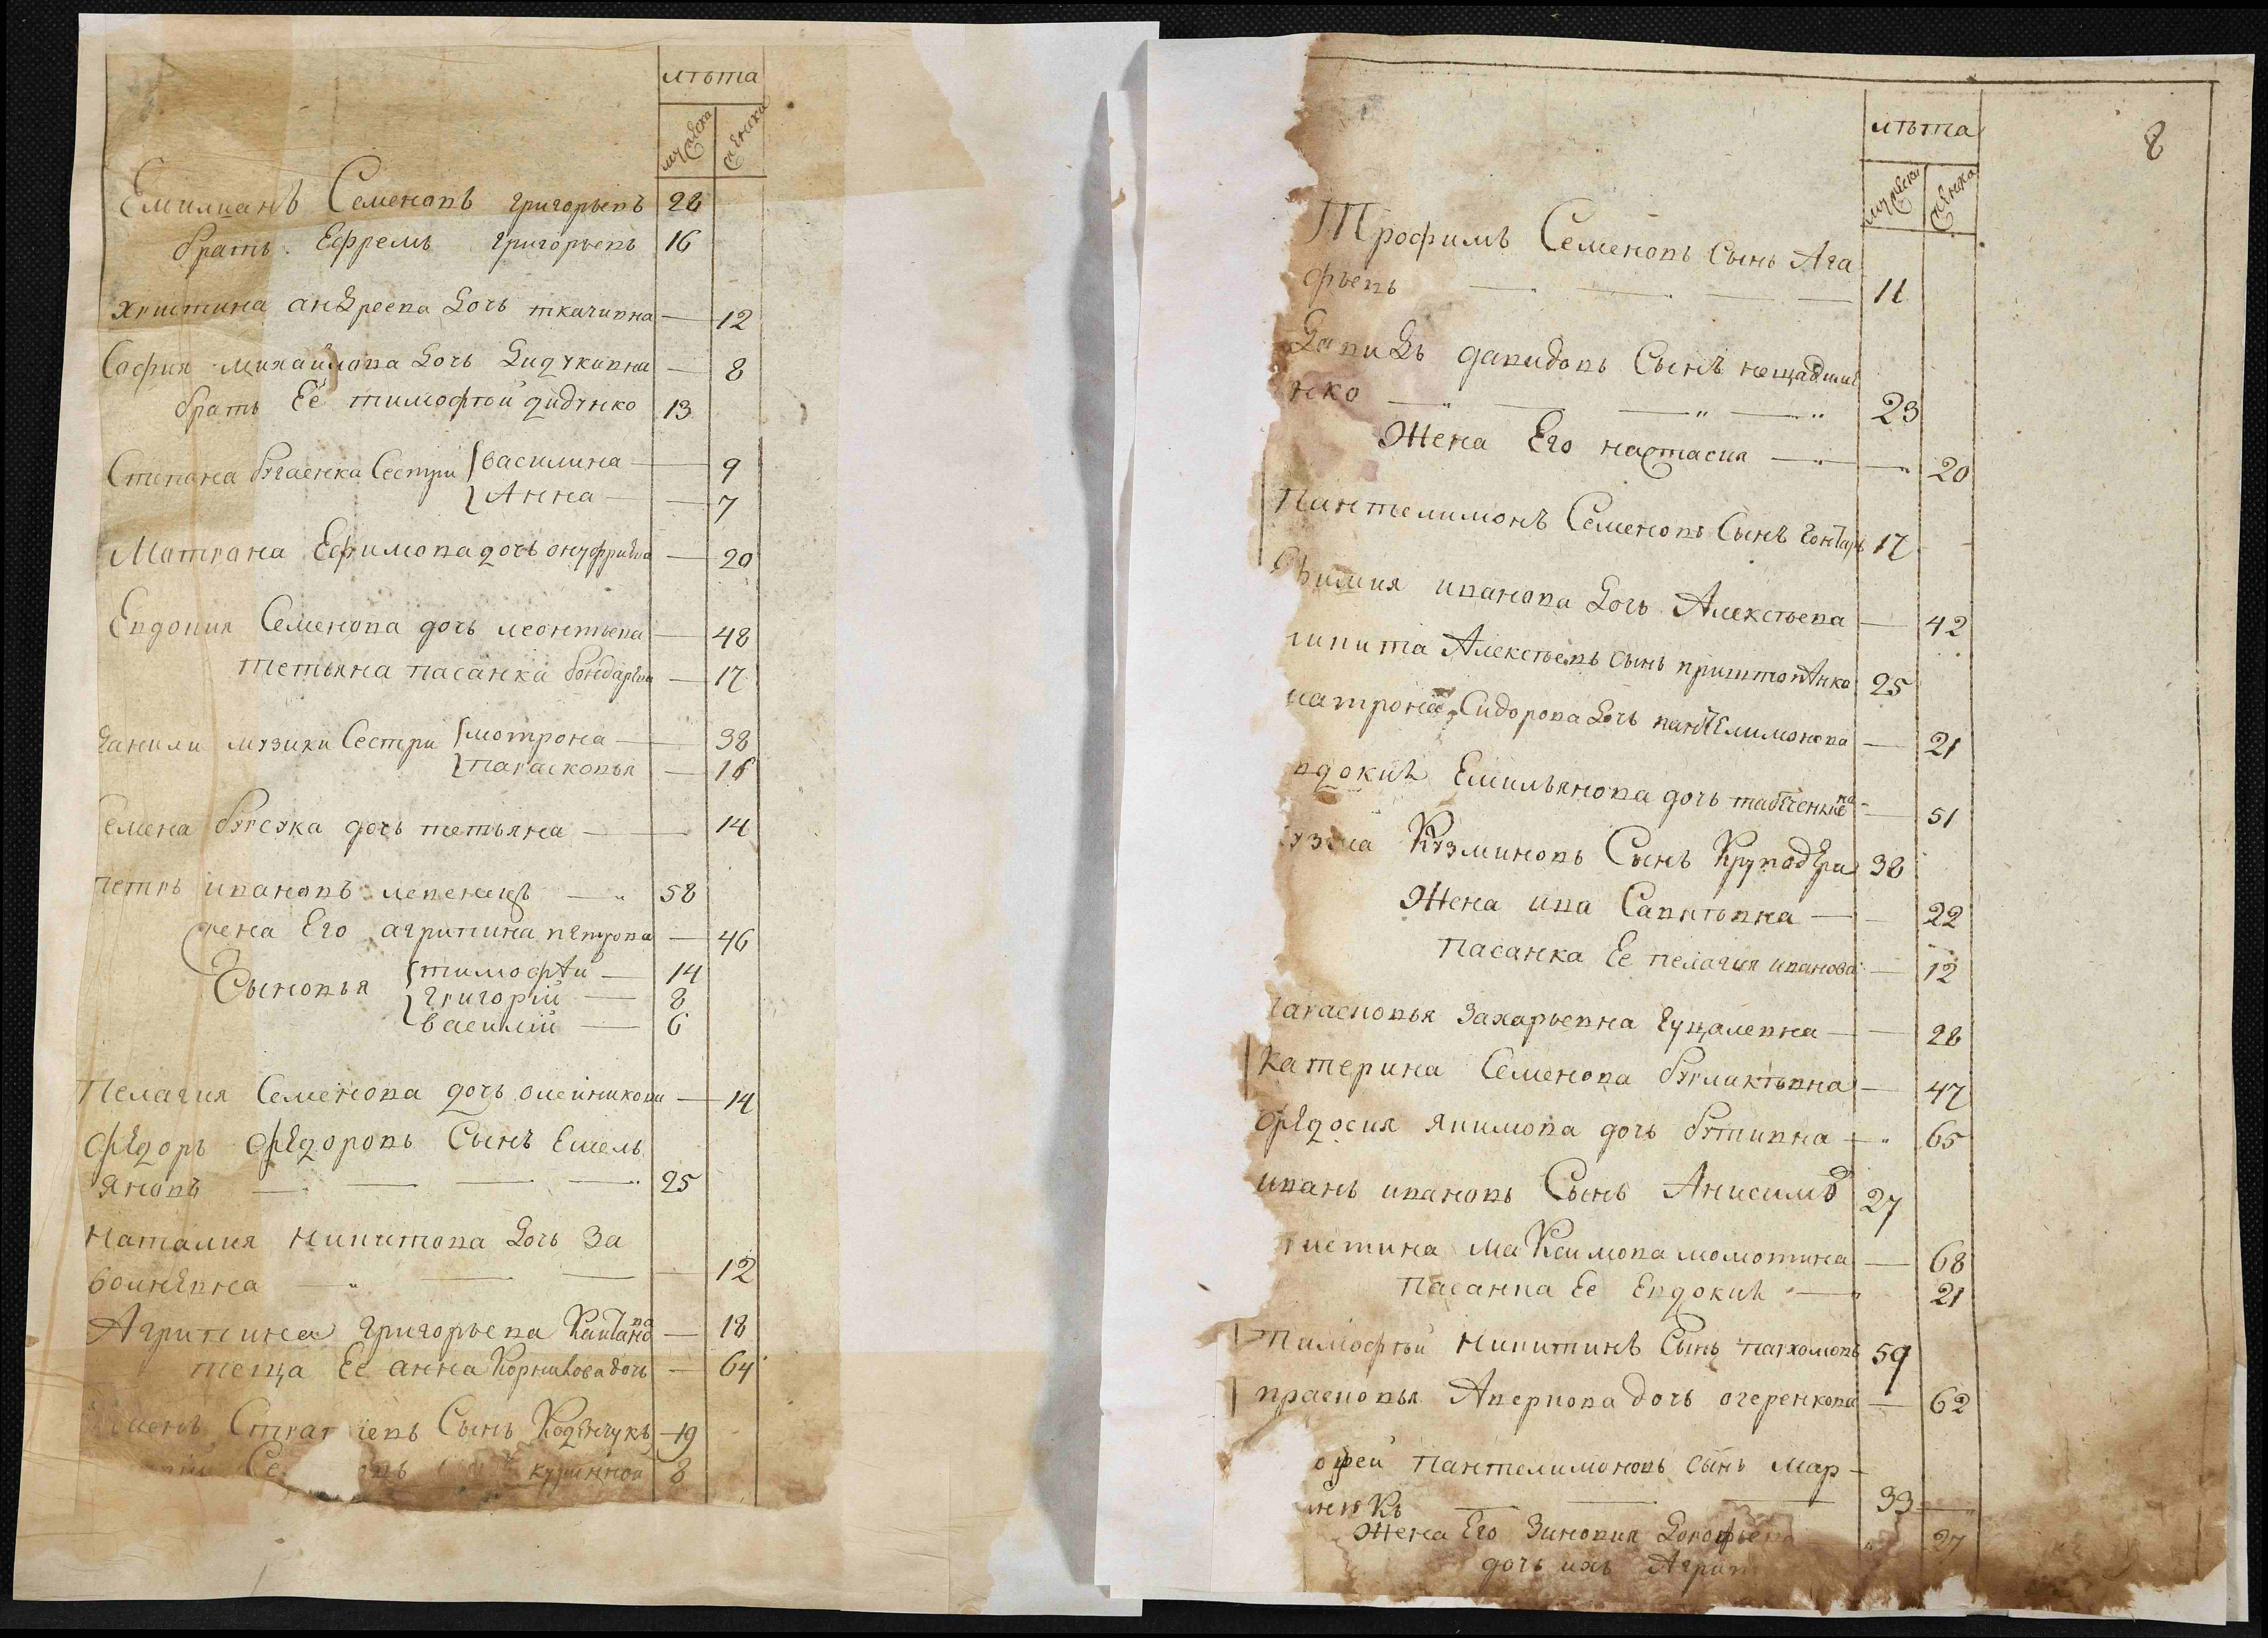 лѣта
мужеска
женска
Емилианъ Семеновъ григорьевъ 28
братъ Ефремъ григорьевъ 16
христина андреева дочь ткачивна — 12
София михайлова дочь дидукивна — 8
братъ Её тимофѣй дидунко 13
Степана бугаенка Сестри василина — 9
Анна — 7
Матрона Ефимова дочь онуфриева — 20
Евдокия Семенова дочь леонтьева — 48
тетьяна пасанка бондарева — 17
данили музики Сестри мотрона — 38
параскопья — 16
Семена дочь тетьяна — 14
петръ ивановъ 58
жена Его агрипина петрова — 46
Сыновья тимофѣй — 14
григорій — 8
василій — 6
Пелагия Семенова дочь олейникова — 14
Федоръ Федоровъ Сынъ Емель
яновъ — 25
наталия никитова дочь За
волневна — 12
Агрипина григорьева — 18
теща Ее анна дочь — 64
Сынъ 19
кушнной 8
8
лѣта
мужеска
женска
Трофимъ Семеновъ Сынъ Ага
фьевъ — 11
давидъ давидовъ Сынъ нещадим
нко — 23
Жена Его настасия — 20
Пантелимонъ Семеновъ Сынъ гонтарь 17
ѣимия иванова дочь Алексѣева — 42
никита Алексѣевъ сынъ 25
матрона Сидорова дочь пантелимонова — 21
вдокия Емильянова дочь — 51
узма Кузминовъ Сынъ Круподери 38
Жена ива Савитовна — 22
пасанка Ее пелагия иванова — 12
параскопья Захарьевна гуцалевна — 28
Катерина Семенова — 47
Федосия якимова дочь бутивна — 65
иванъ ивановъ Сынъ Анисимов 27
ристина маКсимова момотина — 68
пасанка Ее Евдокия — 21
Тимофѣй никитинъ Сынъ пархомовъ 59
прасковья Аверкова дочь очеренкова — 62
офей пантелимоновъ сынъ мар-
нюкъ — 33
Жена Его Зиновия 27
дочь ихъ Агрип